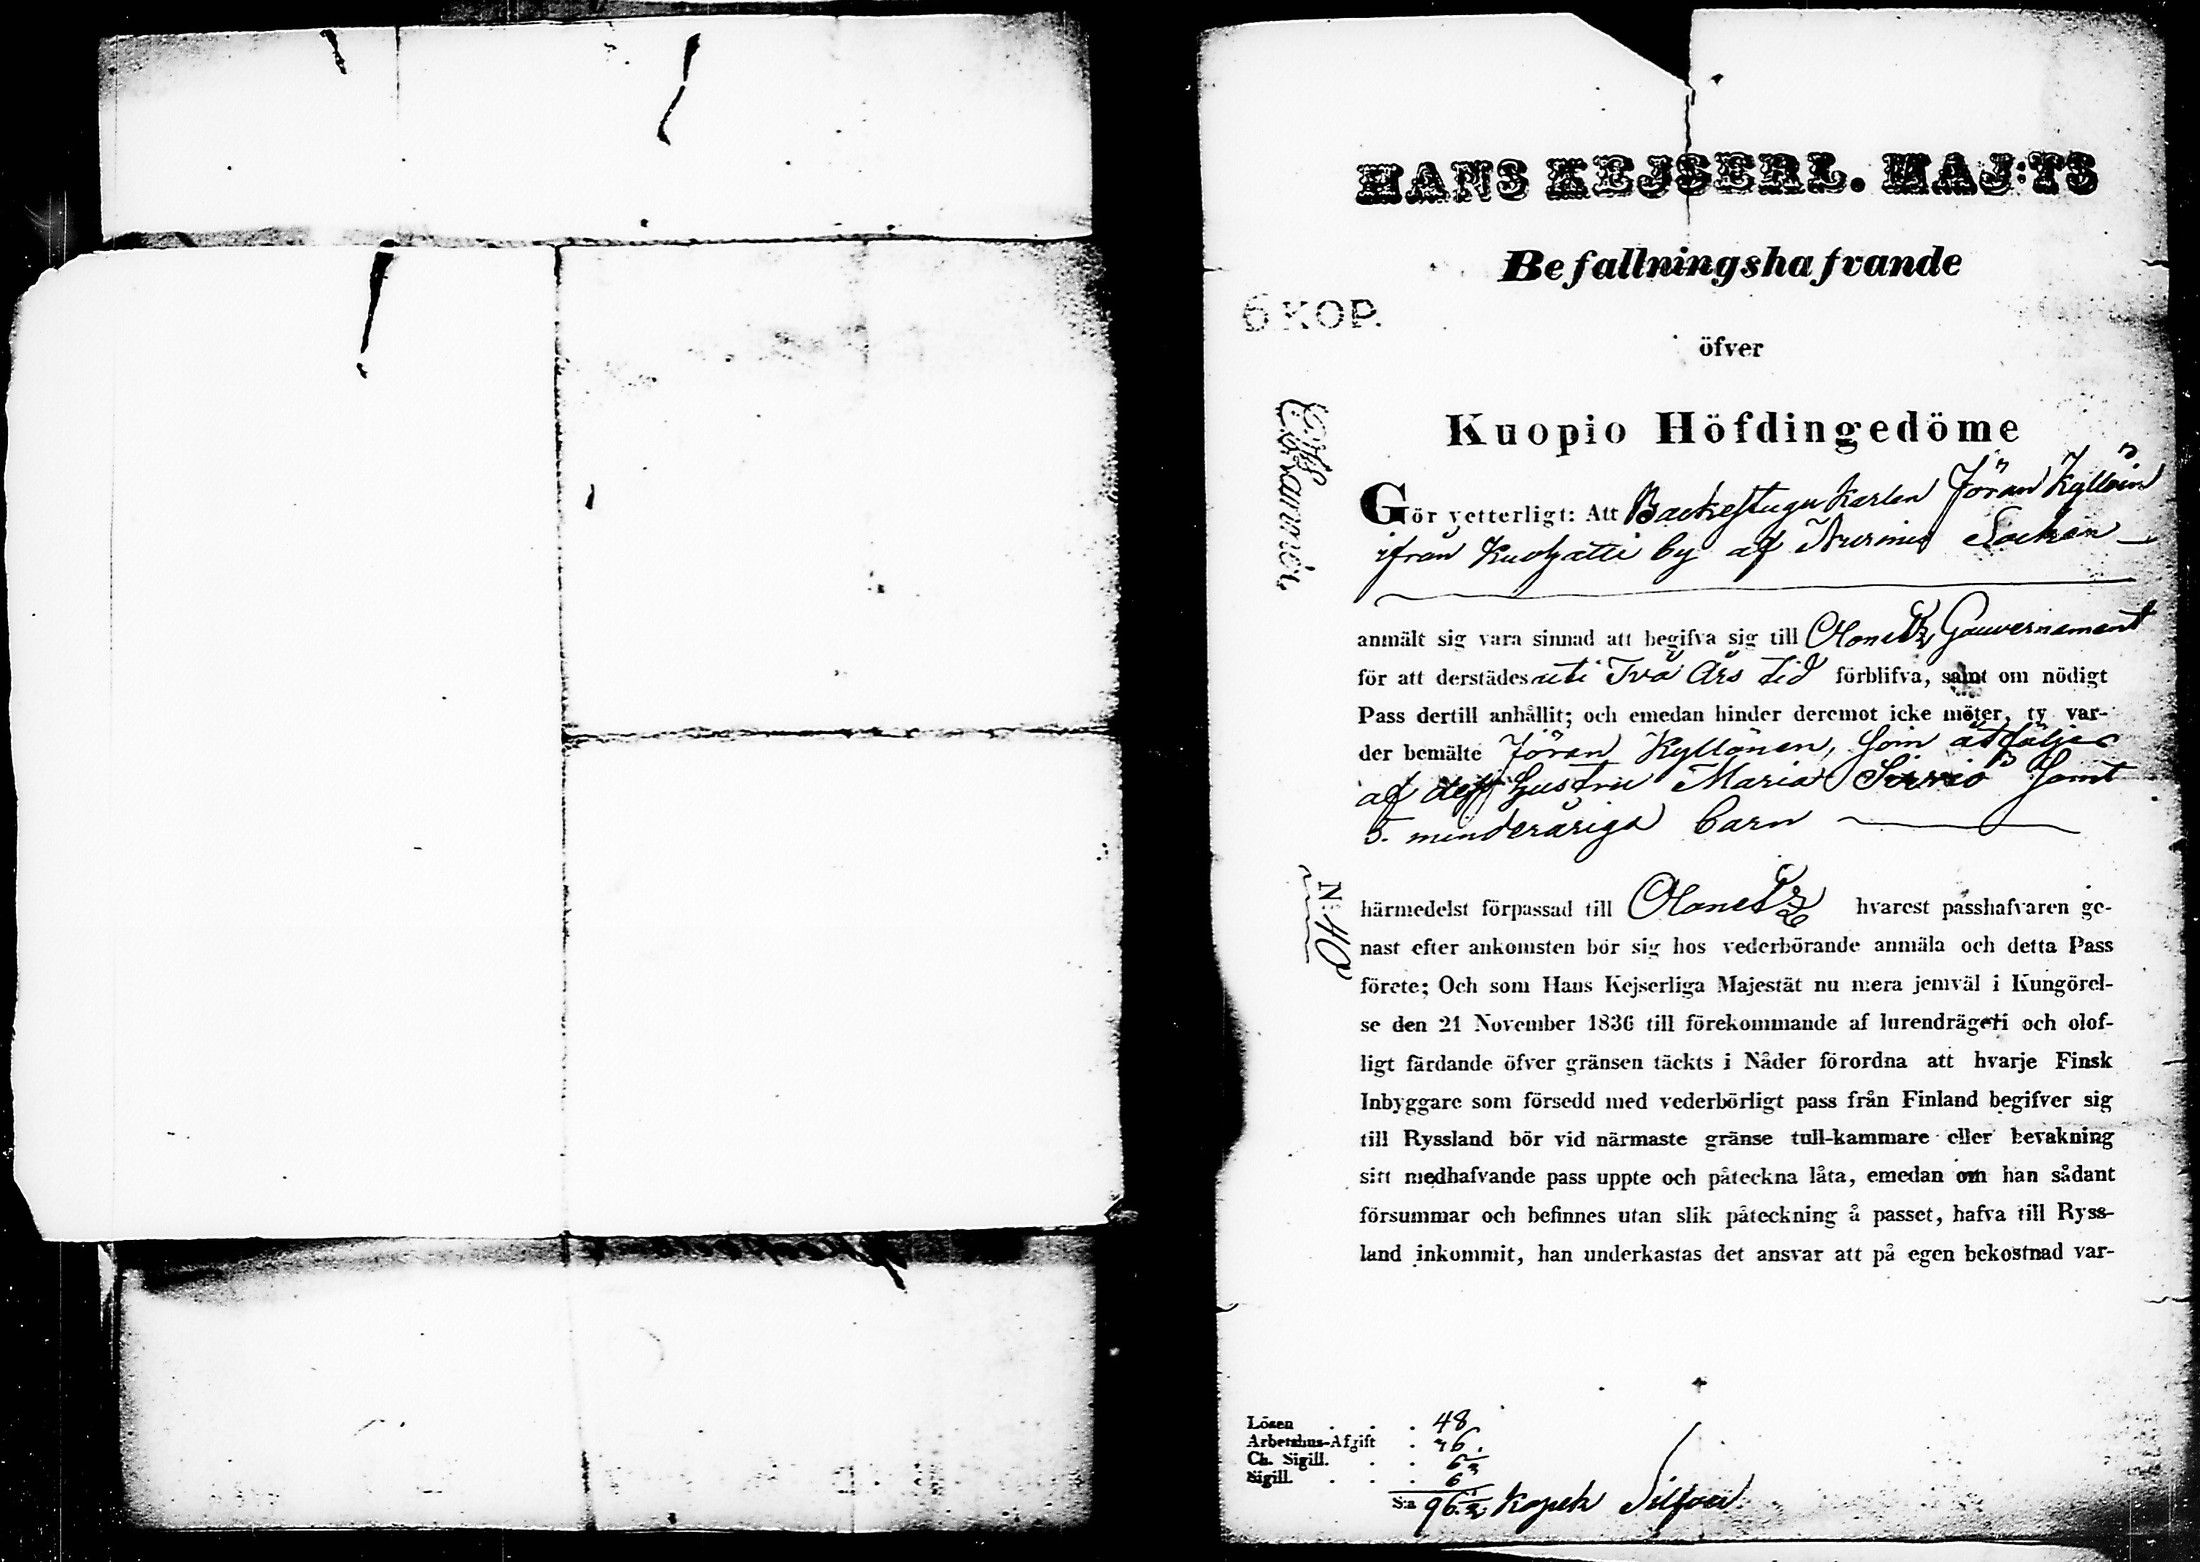 HANS KEJSERL. MAJ:TS
Befallningshafvande
6 KOP.
öfver
Kuopio Höfdingedöme
Gör vetterligt: Att Backestugu Karlen Jöran Kyllöin
ifrån by af Nurmis Socken
anmält sig vara sinnad att begifva sig till Olonetz Gouvernement
för att derstädes uti Två Års tid förblifva, samt om nödigt
Pass dertill anhållit; och emedan hinder deremot icke möter, ty var-
der bemälte Jöran Kyllönen, som åtföljes
af dess hustru Maria Sirviö samt
5. minderåriga barn
N: 40
härmedelst förpassad till Olonetz hvarest passhafvaren ge-
nast efter ankomsten bör sig hos vederbörande anmäla och detta Pass
förete; Och som Hans Kejserliga Majestät nu mera jemväl i Kungörel-
se den 21 November 1836 till förekommande af lurendrägeri och olof-
ligt färdande öfver gränsen täckts i Nåder förordna att hvarje Finsk
Inbyggare som försedd med vederbörligt pass från Finland begifver sig
till Ryssland bör vid närmaste gränse tull-kammare eller bevakning
sitt medhafvande pass uppte och påteckna låta, emedan om han sådant
försummar och befinnes utan slik påteckning å passet, hafva till Ryss-
land inkommit, han underkastas det ansvar att på egen bekostnad var-
Lösen . . . 48
Arbetshus-Afgift .
Ch. Sigill. . .
Sigill. . . . 6
S:a 96 1/2 Kopek Silfver